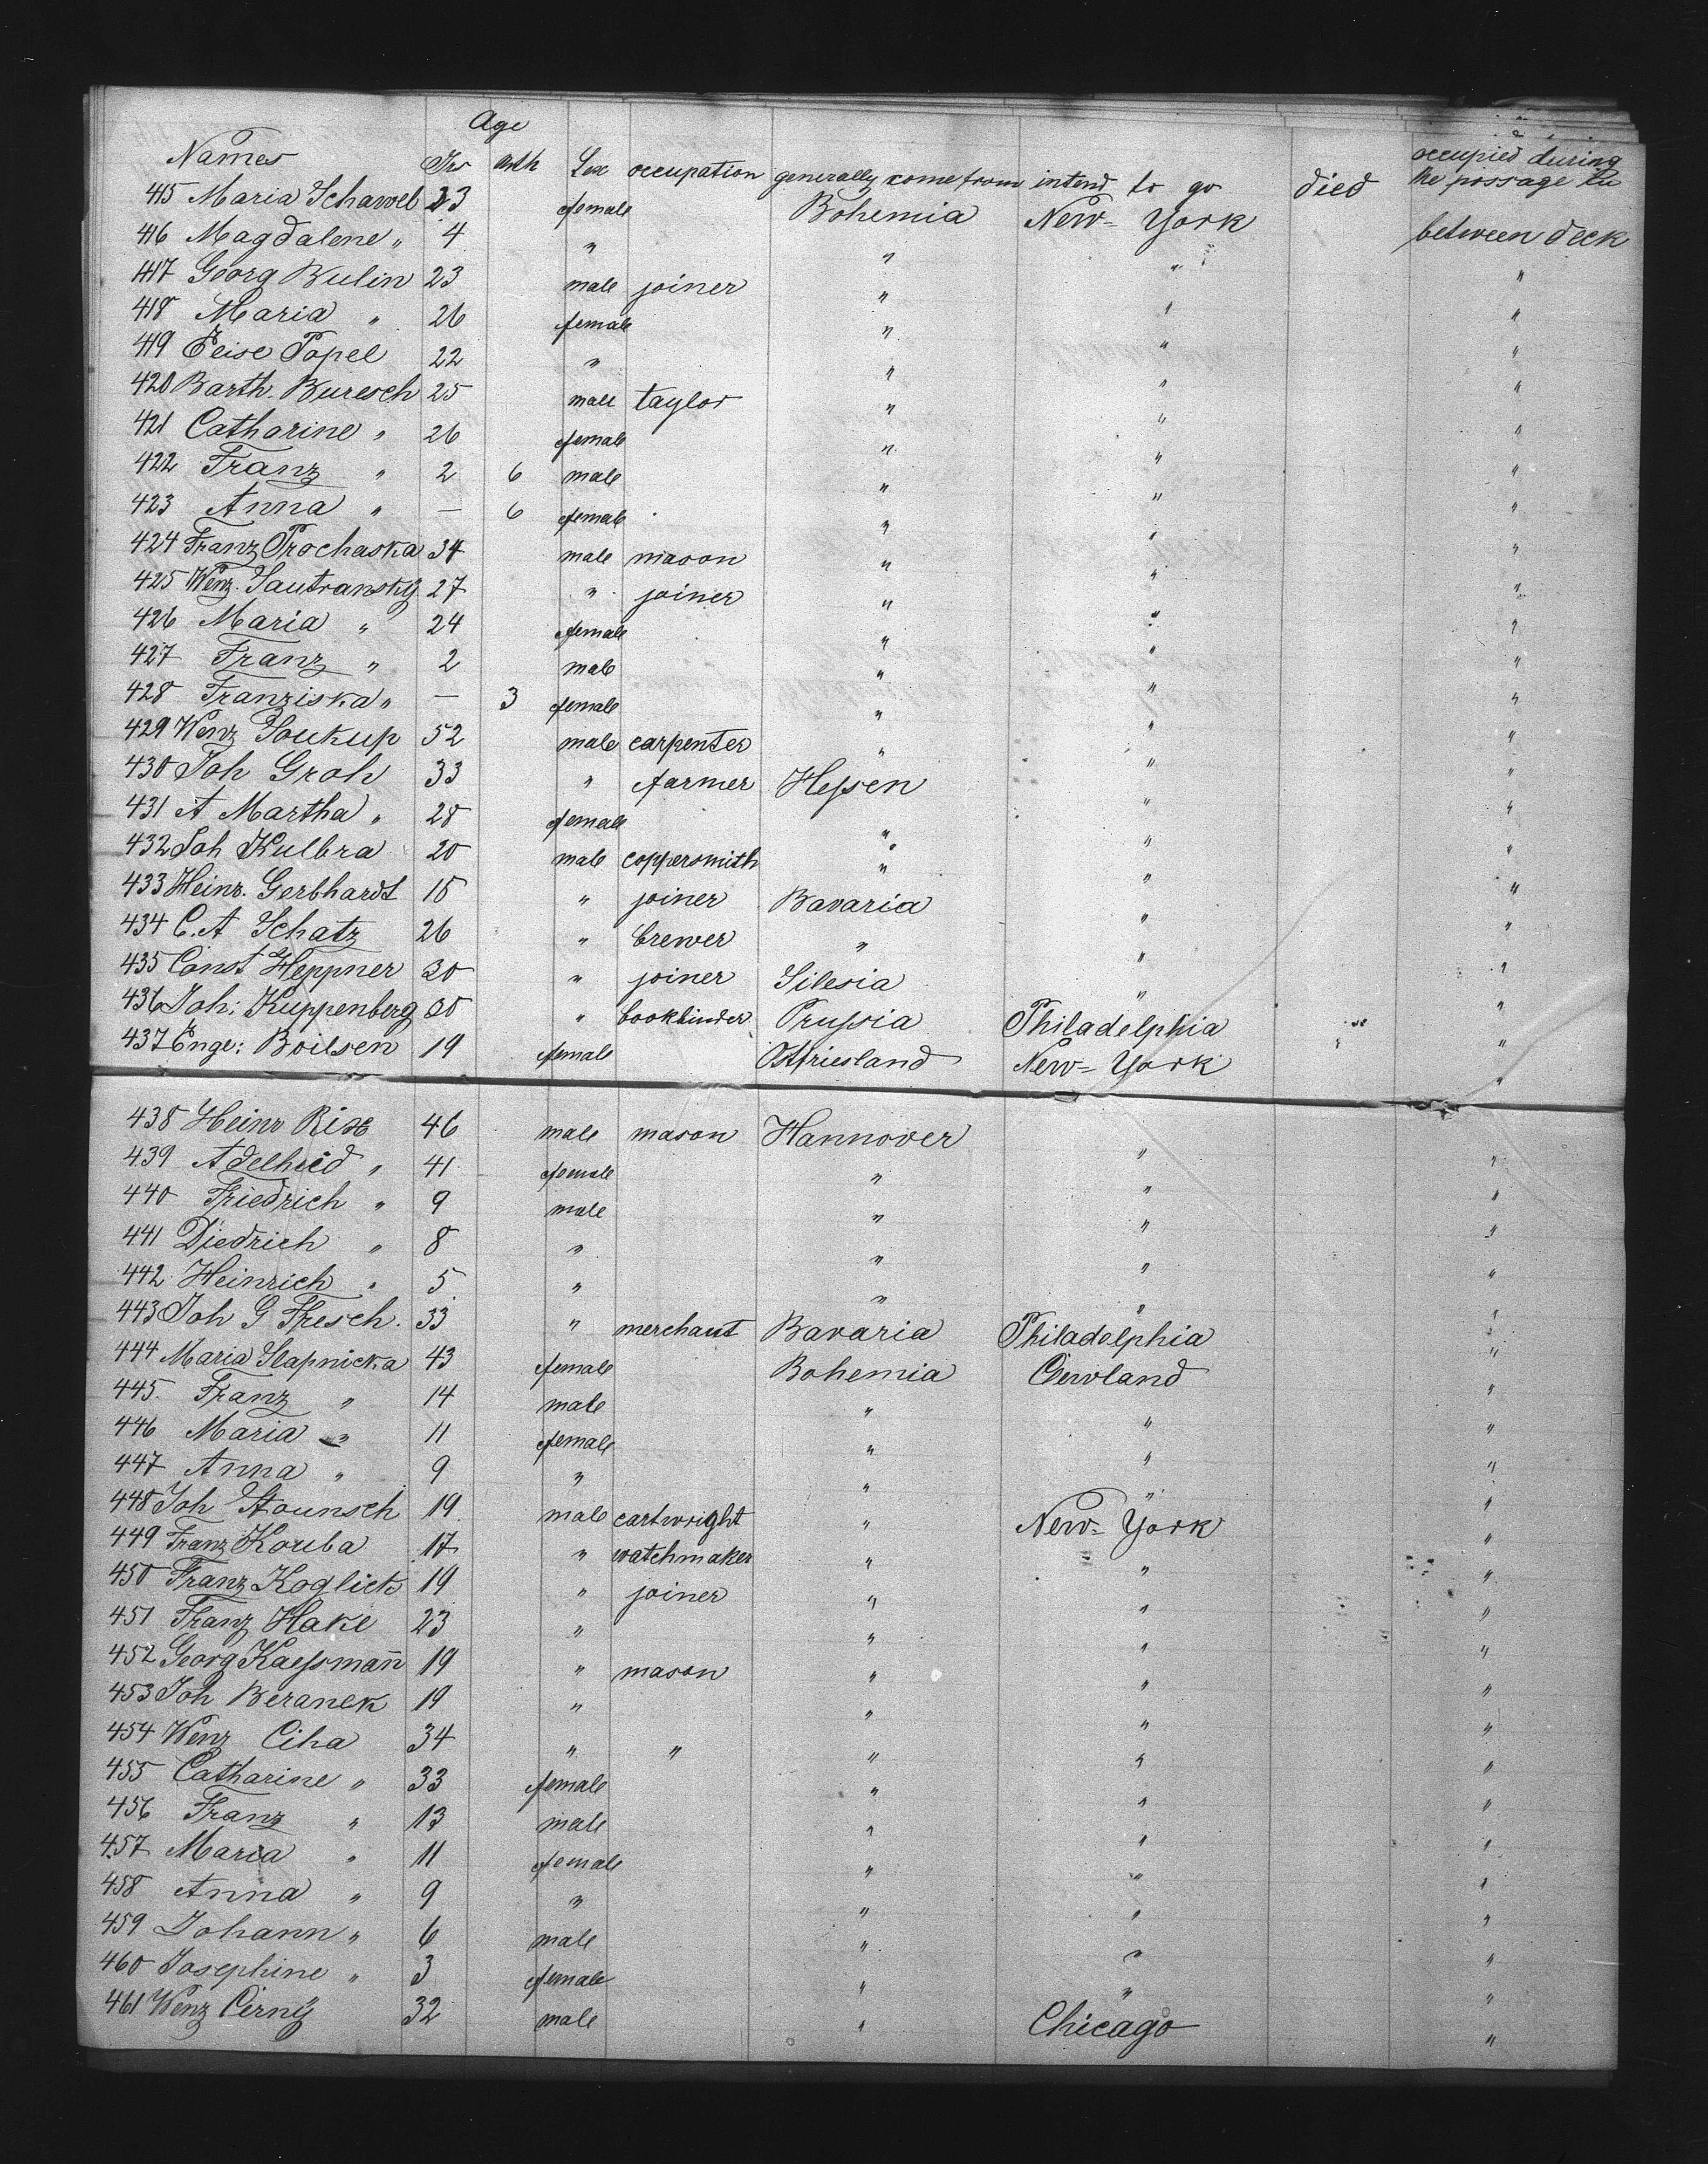 Age
Names Yrs mth Sex occupation generally come from intend to go died occupied during the passage
415 Maria Schawel 23 female Bohemia New-York between deck
416 Magdalene " 4 " " " "
417 Georg Bulin 23 male joiner " " "
418 Maria " 26 female " " "
419 Elise Popel 22 " " " "
420 Barth. Buresch 25 male taylor " " "
421 Catharine " 26 female " " "
422 Franz " 2 6 male " " "
423 Anna " — 6 female " " "
424 Franz Prochaska 34 male mason " " "
425 Wenz. Sautransky 27 " joiner " " "
426 Maria " 24 female " " "
427 Franz " 2 male " " "
428 Franziska " — 3 female " " "
429 Wenz Soukup 52 male carpenter " " "
430 Joh Groh 33 " farmer Hessen " "
431 A Martha " 28 female " " "
432 Joh Kulbra 20 male coppersmith " " "
433 Heinr. Gerbhardt 18 " joiner Bavaria " "
434 C. A Schatz 26 " brewer " " "
435 Const Heppner 30 " joiner Silesia " "
436 Joh: Kuppenberg " bookbinder Prussia Philadelphia "
437 Enge: Boilsen 19 female Ostfriesland New-York "
438 Heinr Rix 46 male mason Hannover " "
439 Adelheid " 41 female " " "
440 Friedrich " 9 male " " "
441 Diedrich " 8 " " " "
442 Heinrich " 5 " " " "
443 Joh G Fresch. 33 " merchant Bavaria Philadelphia "
444 Maria Slapnicka 43 female Bohemia Clewland "
445. Franz " 14 male " " "
446 Maria " 11 female " " "
447 Anna " 9 " " " "
448 Joh Stounsch 19 male cartwright " New-York "
449 Franz Kouba 17 " watchmaker " " "
450 Franz Koglick 19 " joiner " " "
451 Franz Hake 23 " " " "
452 Georg Kaessmañ 19 " mason " " "
453 Joh Beranek 19 " " " "
454 Wenz Ciha 34 " " " " "
455 Catharine " 33 female " " "
456 Franz " 13 male " " "
457 Maria " 11 female " " "
458 Anna " 9 " " " "
459 Johann " 6 male " " "
460 Josephine " 3 female " " "
461 Wenz Cerny 32 male " Chicago "